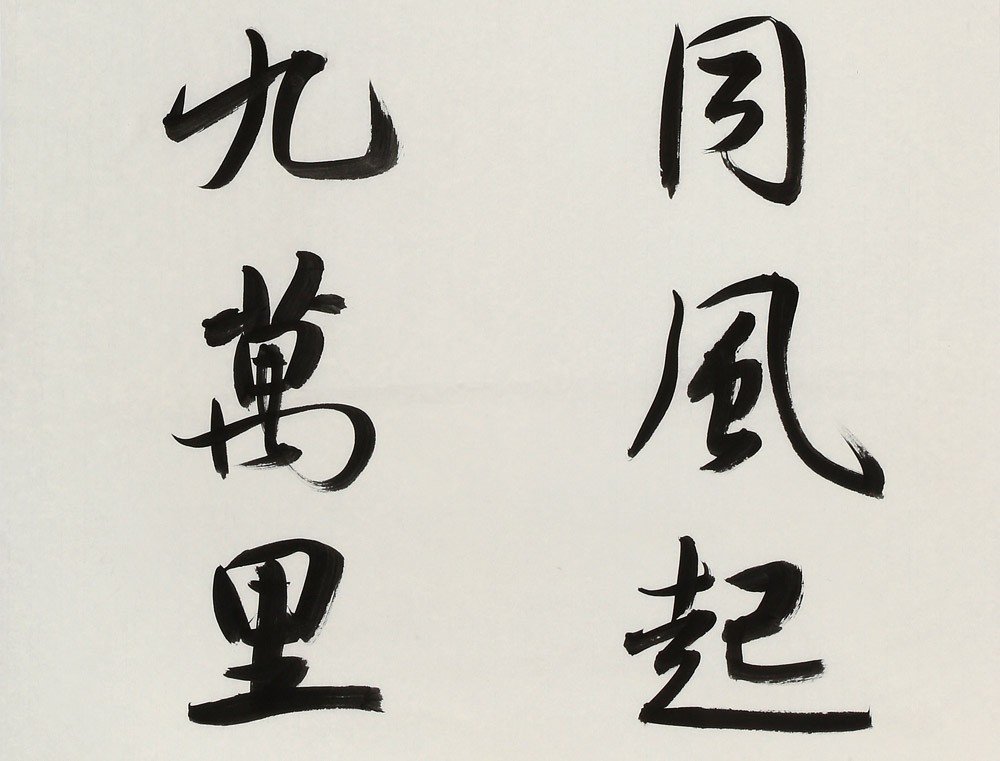 同風起
九萬里